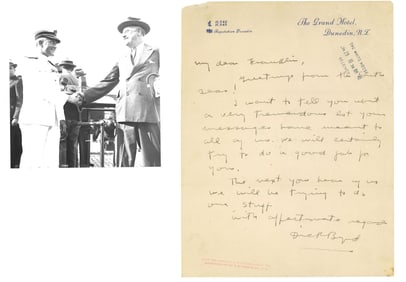 The Grand Hotel,
Dunedin, N.Z.
My dear Franklin,
Greetings from the South
Seas!
I want to tell you what
a very tremendous lot your
messages have meant to
all of us. We will certainly
try to do a good job for
you.
The next you hear of us
we will be trying to do
our stuff
with affectionate regards
Dick Byrd